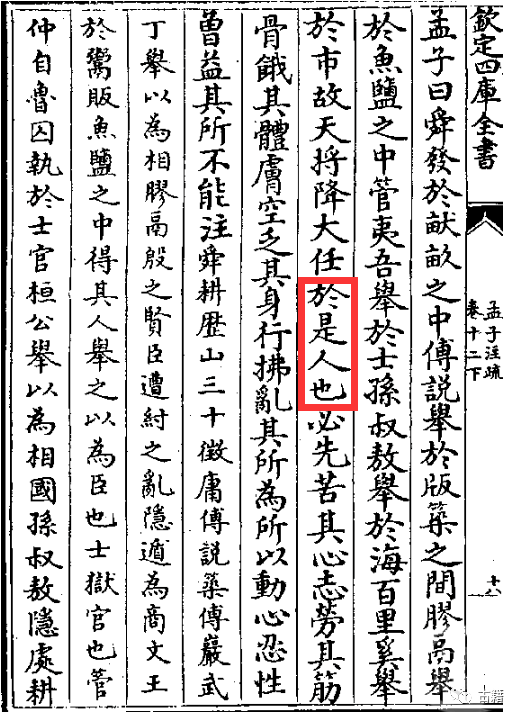 欽定四庫全書
孟子注疏
卷十二下
十八
孟子曰舜發於畎畝之中傅說舉於版築之間膠鬲舉
於魚鹽之中管夷吾舉於士孫叔敖舉於海百里奚舉
於市故天將降大任於是人也必先苦其心志勞其筋
骨餓其體膚空乏其身行拂亂其所為所以動心忍性
曽益其所不能注舜耕歴山三十徵庸傅說築傅巖武
丁舉以為相膠鬲殷之賢臣遭紂之亂隱遁為商文王
於鬻販魚鹽之中得其人舉之以為臣也士獄官也管
仲自魯囚執於士官桓公舉以為相國孫叔敖隱處耕
古籍